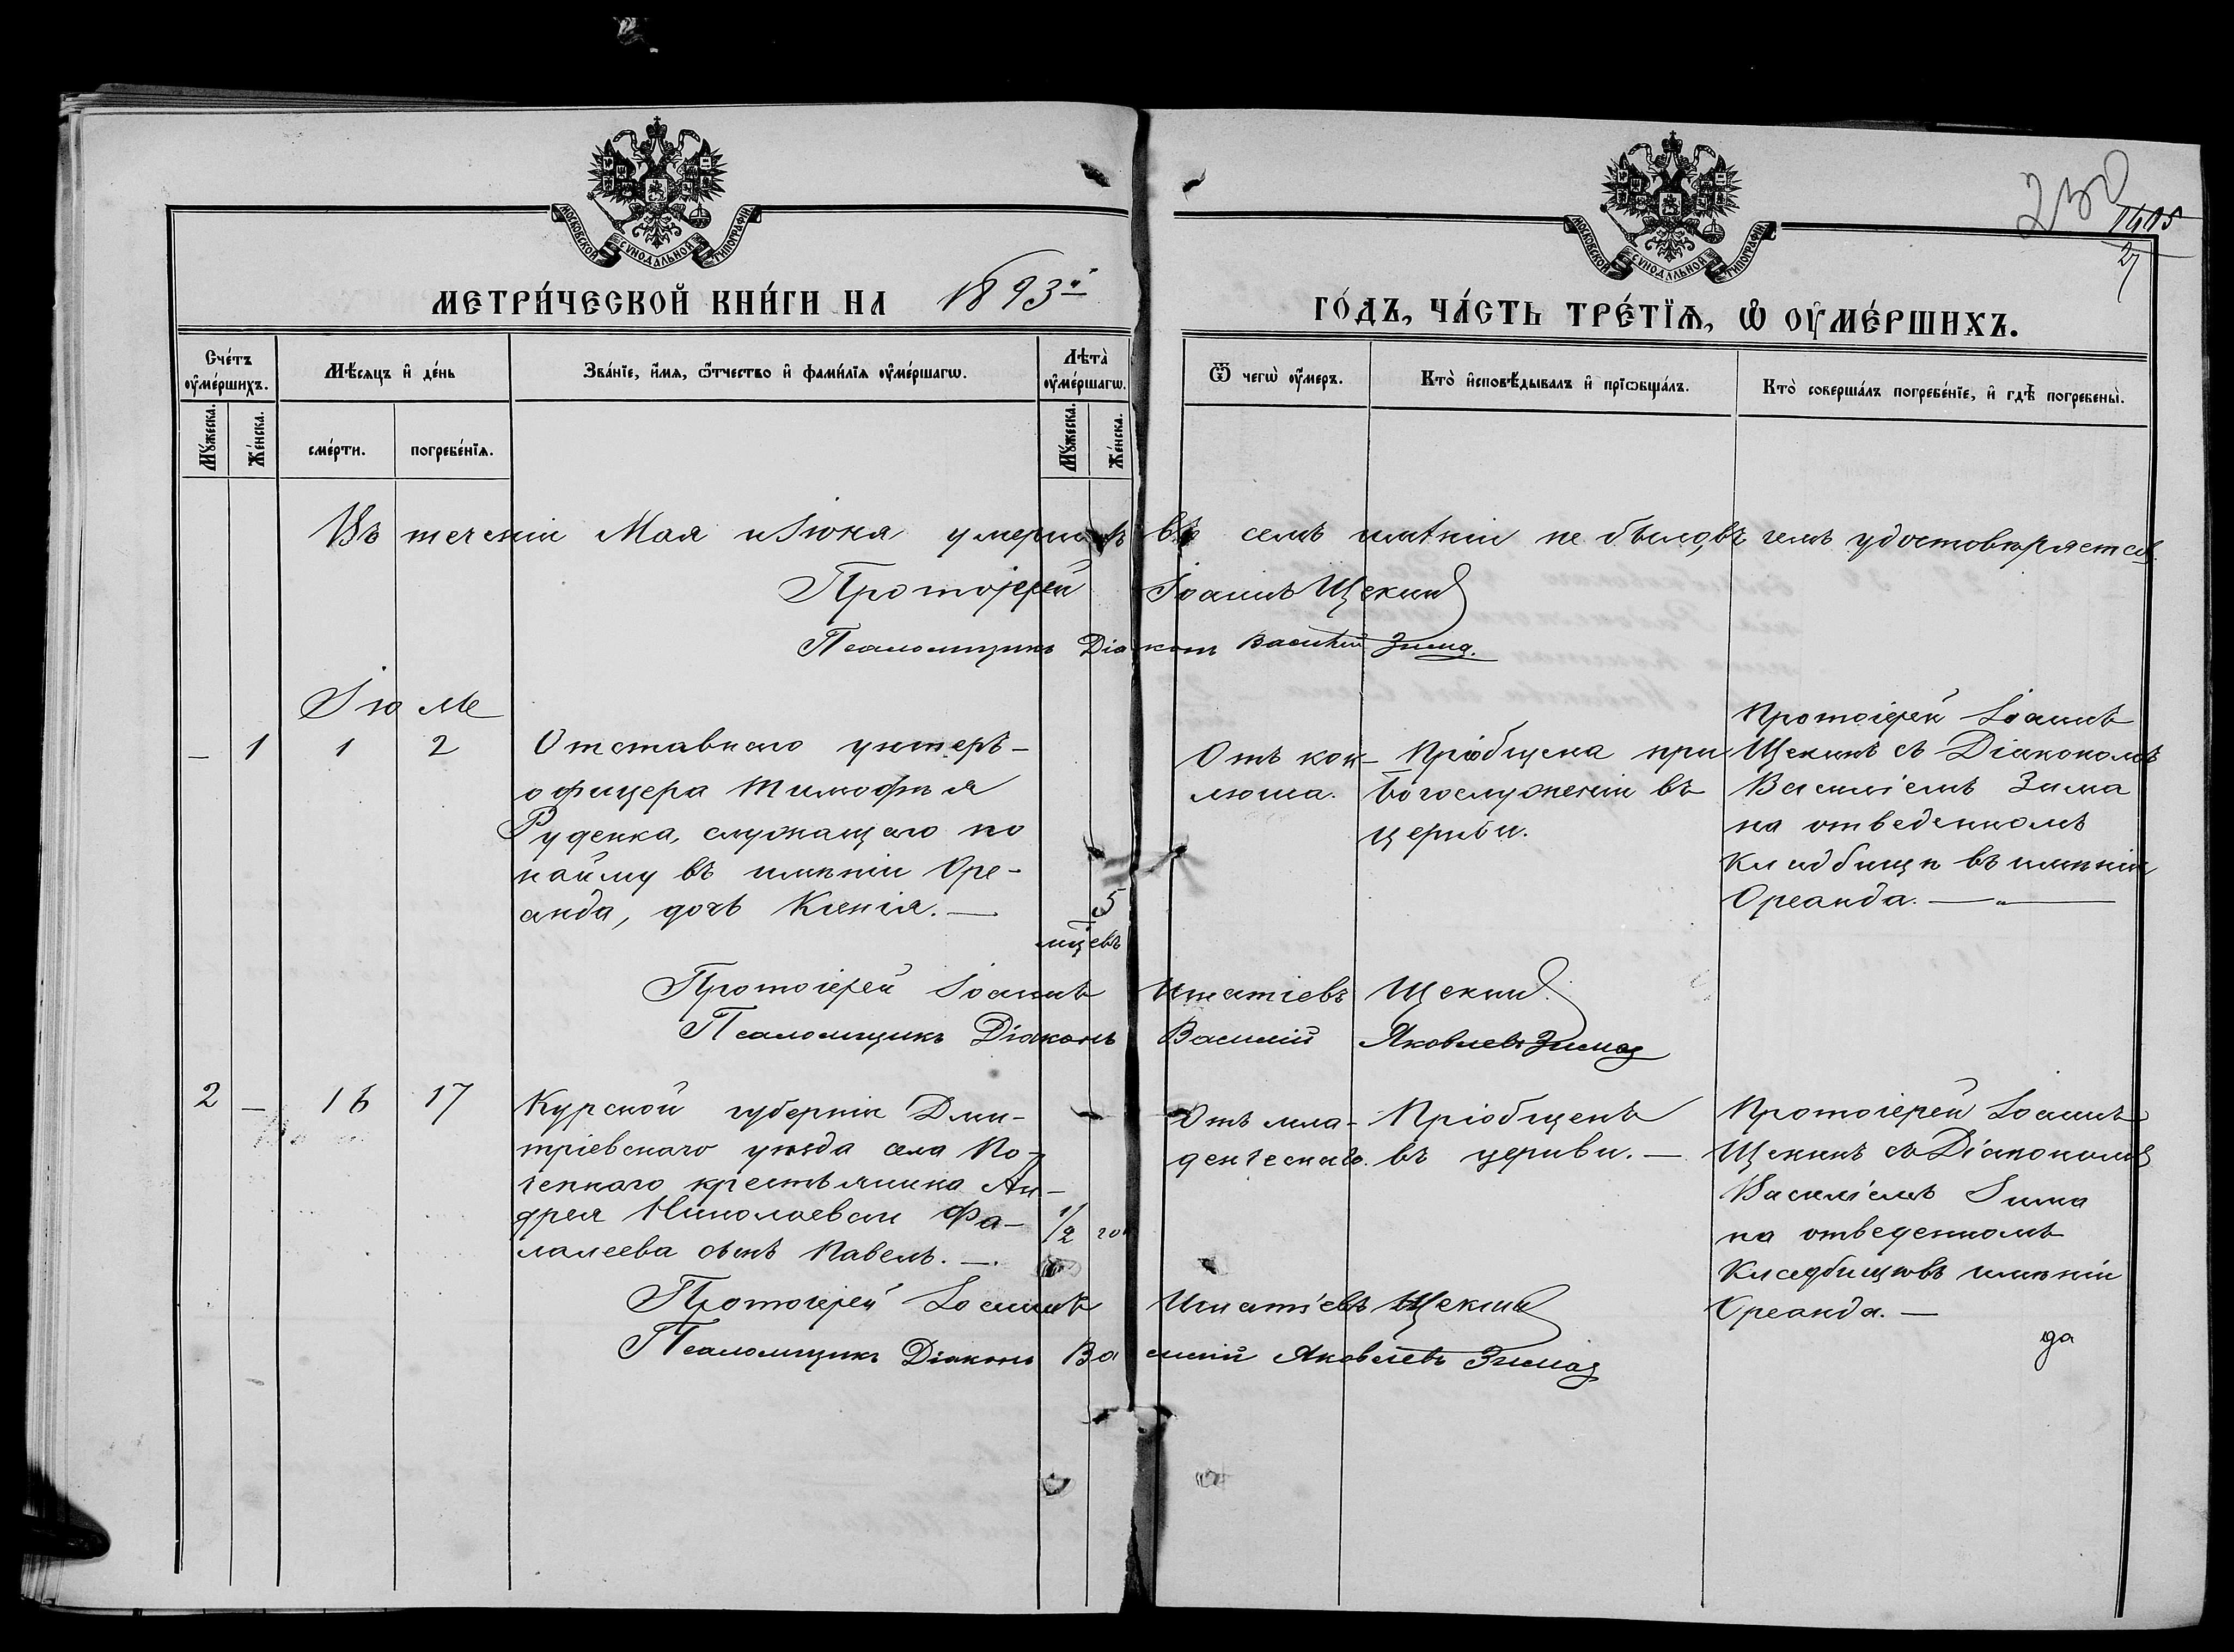 230
1405
27
МОСКОВСКОЙ СѴНОДАЛЬНОЙ ТИПОГРАФІИ
МОСКОВСКОЙ СѴНОДАЛЬНОЙ ТИПОГРАФІИ
МЕТРИ́ЧЕСКОЙ КНИ́ГИ НА 1893й ГО́ДЪ, ЧА́СТЬ ТРЕ́ТЇѦ, Ѡ҆ ОУ҆МЕ́РШИХЪ.
Сче́тъ оу҆ме́ршихъ.
Мꙋ́жеска.
Же́нска.
Мѣ́сяцъ и҆ де́нь
сме́рти.
погребе́нїѧ.
Зва́нїе, и҆́мя, ѻ҆́тчество и҆ фами́лїѧ оу҆ме́ршагѡ.
Лѣ́та оу҆ме́ршагѡ.
Мꙋ́жеска.
Же́нска.
Ѿ чегѡ̀ оу҆́меръ.
Кто̀ и҆сповѣ́дывалъ и҆ прїѡбща́лъ.
Кто̀ соверша́лъ погребе́нїе, и҆ гдѣ̀ погребены̀.
Въ теченіи Мая и Іюня умершихъ въ семъ имѣніи не было, въ чемъ удостовѣряется
Протоіерей Іоаннъ Щекинъ
Псаломщикъ Діаконъ Василій Зима.
Іюль
– 1 1 2
Отставнаго унтеръ-
офицера Тимофѣя
Руденка, служащаго по
найму въ имѣніи Оре-
анда, дочь Ксенія. —
5
мцевъ
Отъ кок-
люша.
Пріобщена при
Богослуженіи въ
церкви.
Протоіерей Іоаннъ
Щекинъ съ Діакономъ
Василіемъ Зима
на отведенномъ
кладбищѣ въ имѣніи
Ореанда. —„—
Протоіерей Іоаннъ Игнатіевъ Щекинъ
Псаломщикъ Діаконъ Василій Яковлевъ Зима
2 – 16 17
Курской губерніи Дми-
тріевскаго уѣзда села По-
геннаго крестьянина Ан-
дрея Николаевси Фа-
лалеева сынъ Павелъ. —.
1/2 год
Отъ мла-
денческаго.
Пріобщенъ
въ церкви. —
Протоіерей Іоаннъ
Щекинъ съ Діакономъ
Василіемъ Зима
на отведенномъ
кладбищѣ въ имѣніи
Ореанда. —
Протоіерей Іоаннъ Игнатіевъ Щекинъ
Псаломщикъ Діаконъ Василій Яковлевъ Зима
да